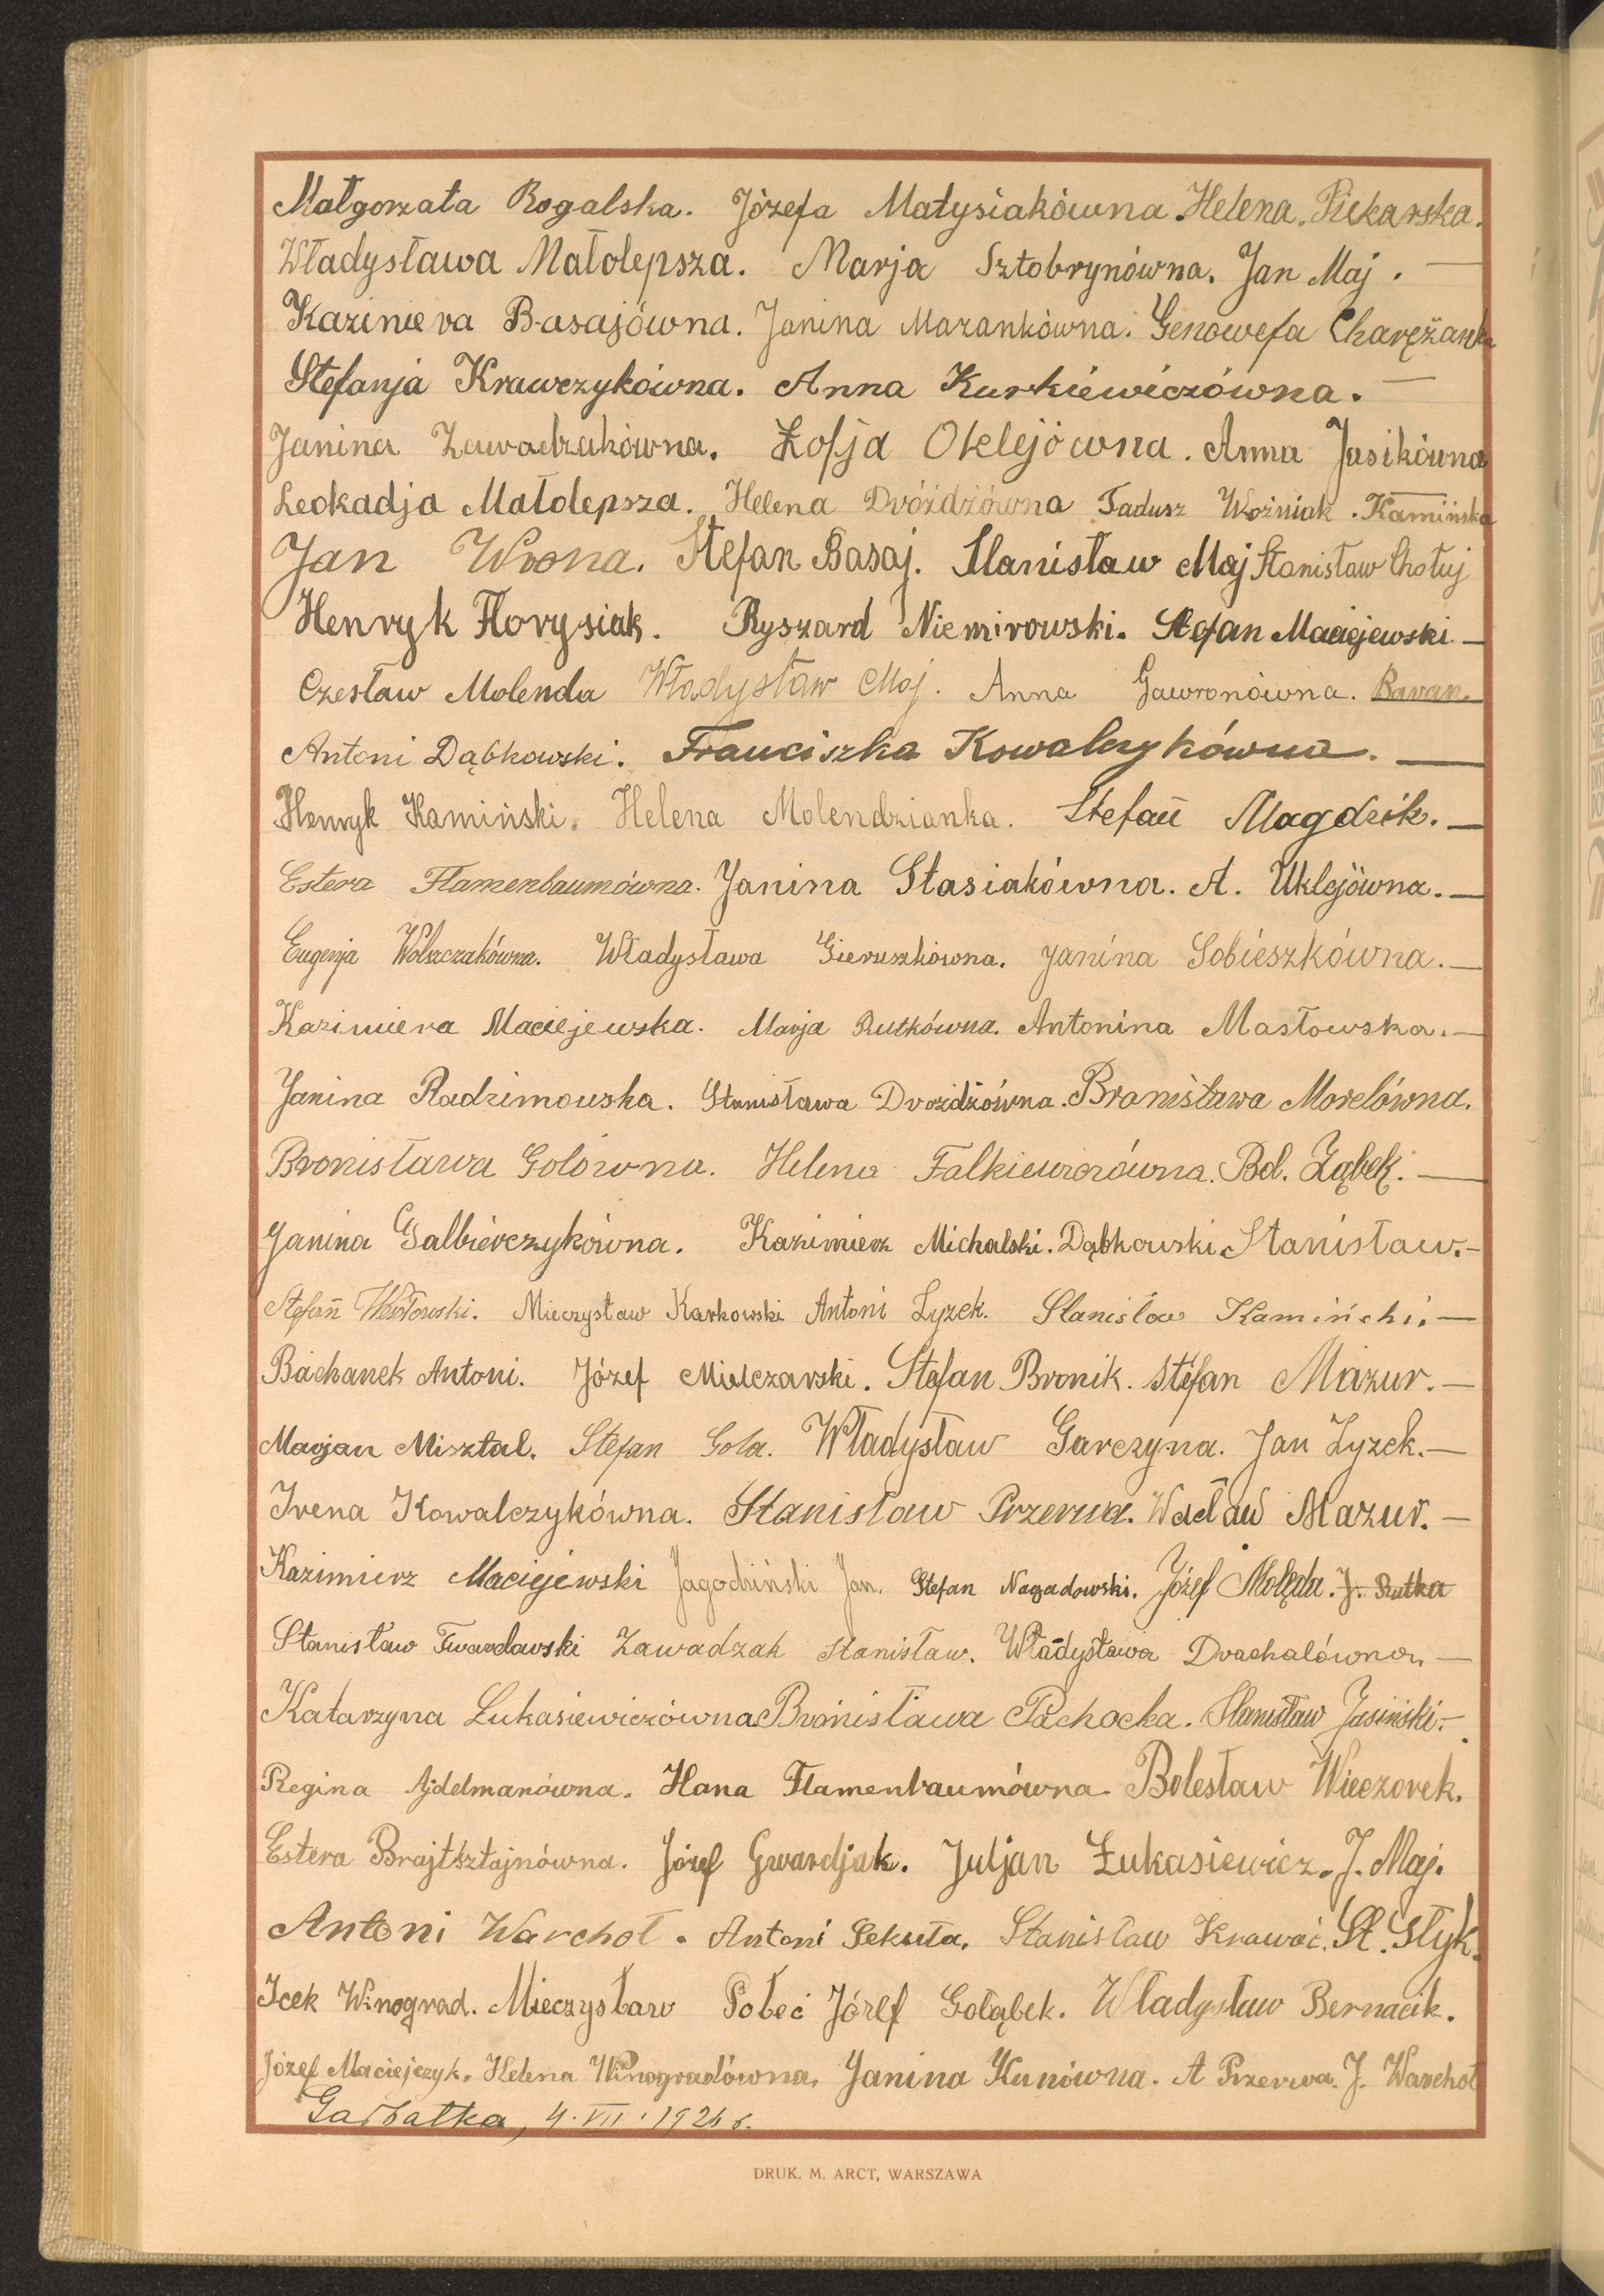 Małgorzata Rogalska. Józefa Matysiakówna. Helena Piekarska.
Władysława Małolepsza. Marja Sztobrynówna. Jan Maj. —
Kazimiera Basajówna. Janina Mazankówna. Genowefa Charężanka
Stefanja Krawczykówna. Anna Kurkiewiczówna. —
Janina Zawadzakówna. Zofja Oklejówna. Anna Jasikówna
Leokadja Małolepsza. Helena Dróżdżówna Tadusz Woźniak. Kamińska
Jan Wrona. Stefan Basaj. Stanisław Maj Stanisław Chołuj
Henryk Florysiak. Ryszard Niemirowski. Stefan Maciejewski —
Czesław Molenda Władysław Maj. Anna Gawronówna. Baran.
Antoni Dąbkowski. Franciszka Kowalczykówna. —
Henryk Kamiński. Helena Molendzianka. Stefan Magdzik. —
Estera Flamenbaumówna. Janina Stasiakówna. A. Uklejówna. —
Eugenja Wolszczakówna. Władysława Gieruszkówna. Janina Sobieszkówna. —
Kazimiera Maciejewska. Marja Rutkówna. Antonina Masłowska. —
Janina Radzimowska. Stanisława Drożdżówna. Bronisława Morelówna.
Bronisława Golówna. Helena Falkiewiczówna. Bol. Ząbek. —
Janina Galbierczykówna. Kazimierz Michalski. Dąbkowski Stanisław. —
Stefan Mieczysław Karkowski Antoni Łyżek. Stanisław Kamiński. —
Bachanek Antoni. Józef Mielczarski. Stefan Bronik. Stefan Mazur. —
Marjan Misztal. Stefan Gola. Władysław Garczyna. Jan Łyżek. —
Irena Kowalczykówna. Stanisław Przerwa. Wacław Mazur. —
Kazimierz Maciejewski Jagodziński Jan. Stefan Nagadowski. Józef Molęda. J. Rutka
Stanisław Twardawski Zawadzak Stanisław. Władysława Drachalówna. —
Katarzyna Łukasiewiczówna Bronisława Pachocka. Stanisław Jasiński. —
Regina Ajdelmanówna. Hana Flamenbaumówna. Bolesław Wieczorek.
Estera Brajtsztajnówna. Józef Gwardjak. Juljan Łukasiewicz. J. Maj.
Antoni Warchoł. Antoni Sekuła. Stanisław Krawać. St. Styk.
Icek Winograd. Mieczysław Połeć Józef Gołąbek. Władysław Bernacik.
Józef Maciejczyk. Helena Winogradówna. Janina Kunówna. A Przerwa. J. Warchoł
Garbatka, 4.VII.1926 r.
DRUK. M. ARCT, WARSZAWA